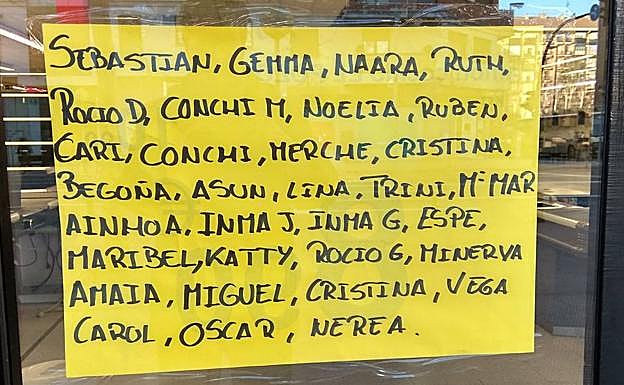 SEBASTIAN, GEMMA, NAARA, RUTH,
ROCIO D, CONCHI M, NOELIA, RUBEN,
CARI, CONCHI, MERCHE, CRISTINA,
BEGOÑA, ASUN, LINA, TRINI, Mª MAR
AINHOA, INMA J, INMA G, ESPE,
MARIBEL, KATTY, ROCIO G, MINERVA
AMAIA, MIGUEL, CRISTINA, VEGA
CAROL, OSCAR, NEREA.